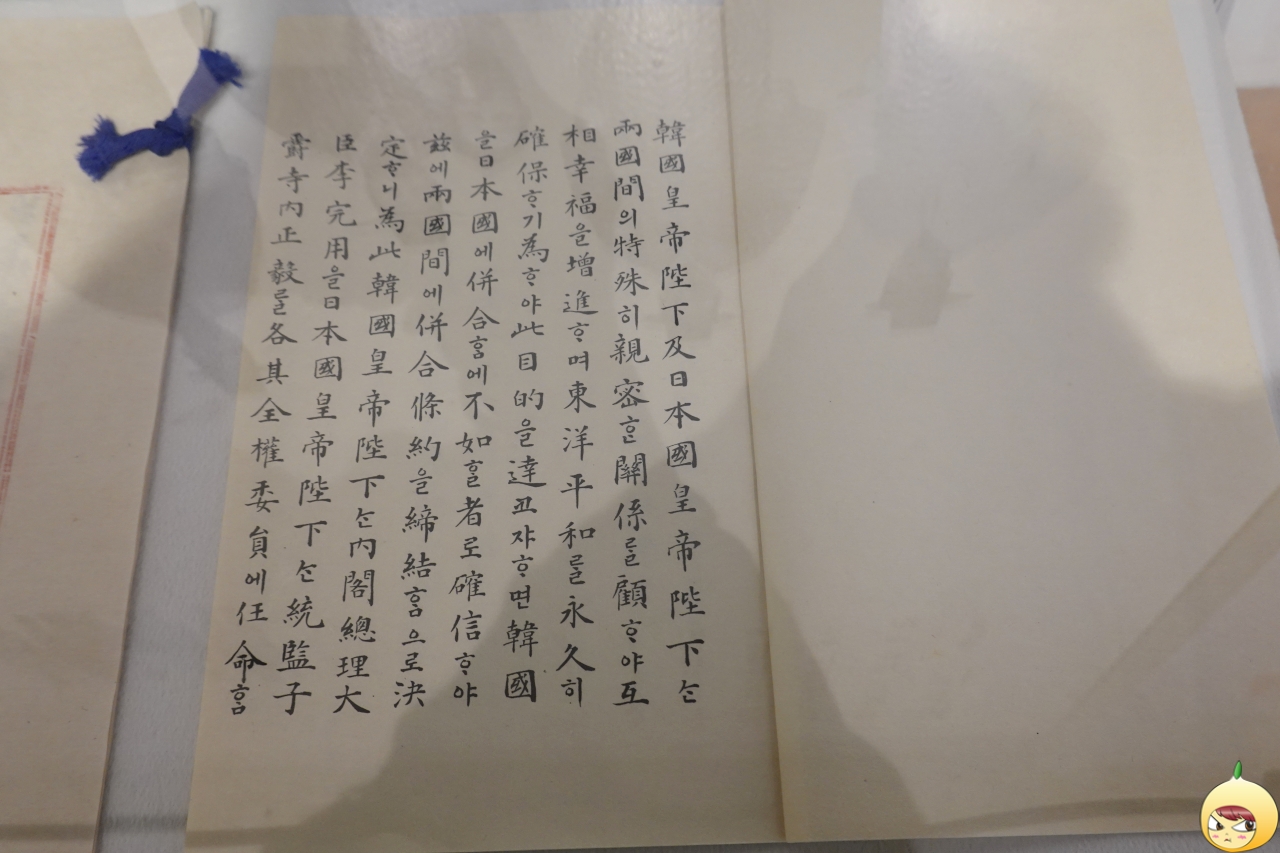 韓國皇帝陛下及日本國皇帝陛下ᄂᆞᆫ
兩國間의特殊히親密ᄒᆞᆫ關係ᄅᆞᆯ顧ᄒᆞ야互
相幸福을增進ᄒᆞ며東洋平和ᄅᆞᆯ永久히
確保ᄒᆞ기爲ᄒᆞ야此目的을達코쟈ᄒᆞ면韓國
을日本國에倂合ᄒᆞᆷ에不如ᄒᆞᆯ者로確信ᄒᆞ야
玆에兩國間에倂合條約을締結ᄒᆞᆷ으로決
定ᄒᆞ니爲此韓國皇帝陛下ᄂᆞᆫ內閣總理大
臣李完用을日本國皇帝陛下ᄂᆞᆫ統監子
爵寺內正毅ᄅᆞᆯ各其全權委員에任命ᄒᆞᆷ